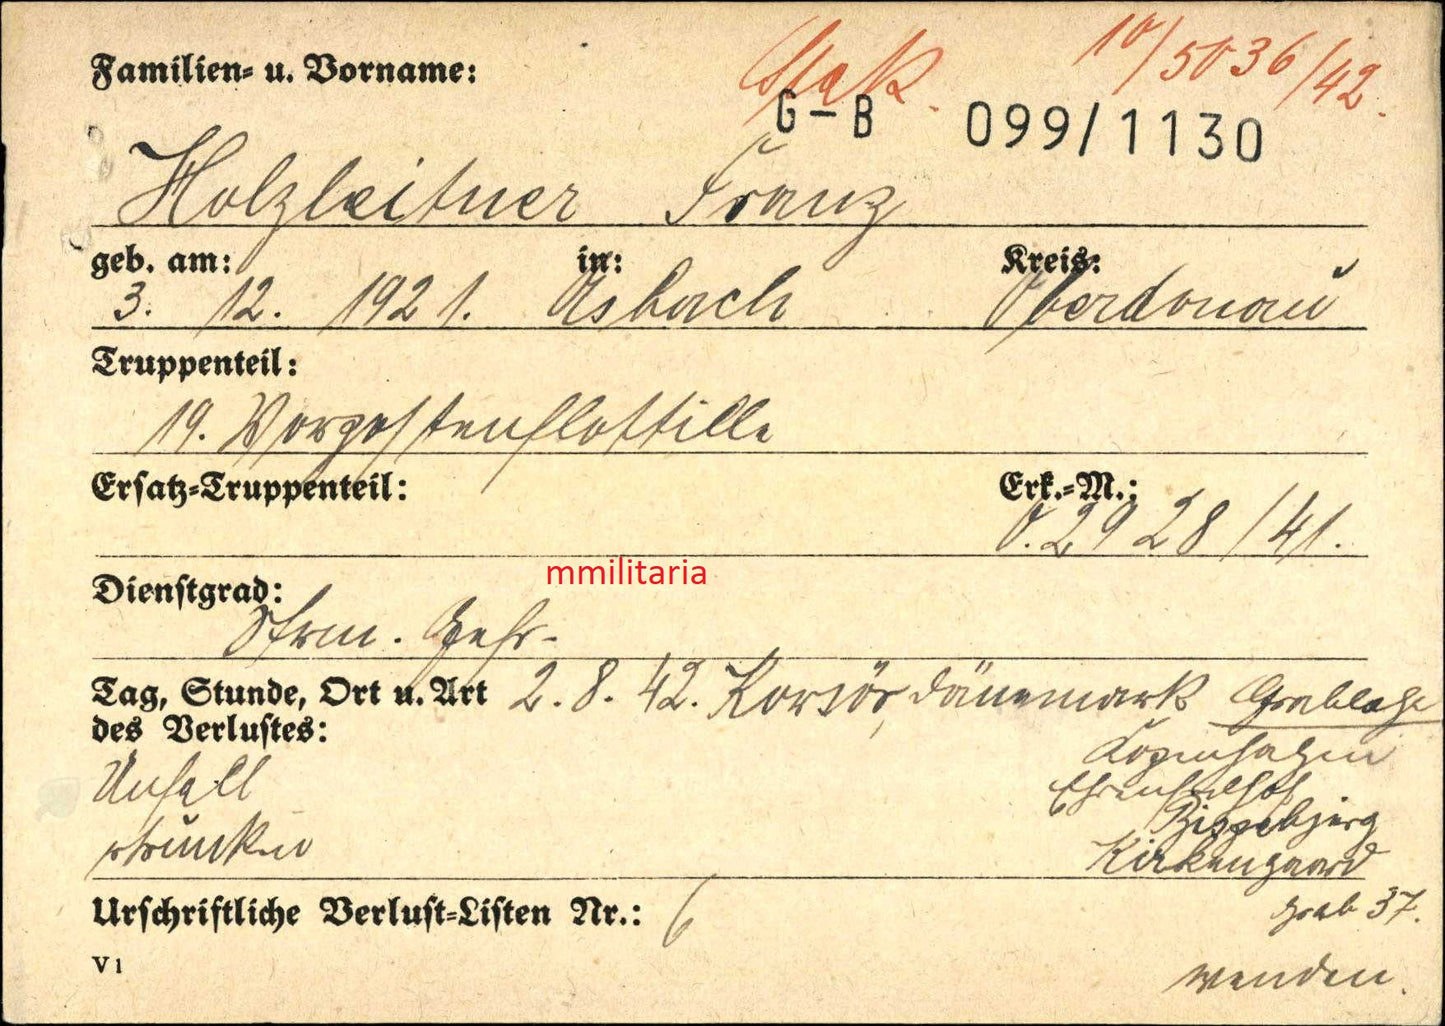 Familien- u. Vorname:
10/5036/42.
G-B 099/1130
Holzleitner Franz
geb. am: in: Kreis:
3. 12. 1921. Asbach Oberdonau
Truppenteil:
19. Vorpostenflottille
Ersatz-Truppenteil: Erk.-M.:
O. 2928/41.
mmilitaria
Dienstgrad:
Strm. Gefr.
Tag, Stunde, Ort u. Art 2. 8. 42. Korsör, Dänemark Grablage
des Verlustes:
Kopenhagen
Unfall
Ehrenfriedhof
Bispebjerg
ertrunken
Kirkengaard
Urschriftliche Verlust-Listen Nr.: 6
Grab 37.
V 1
wenden.